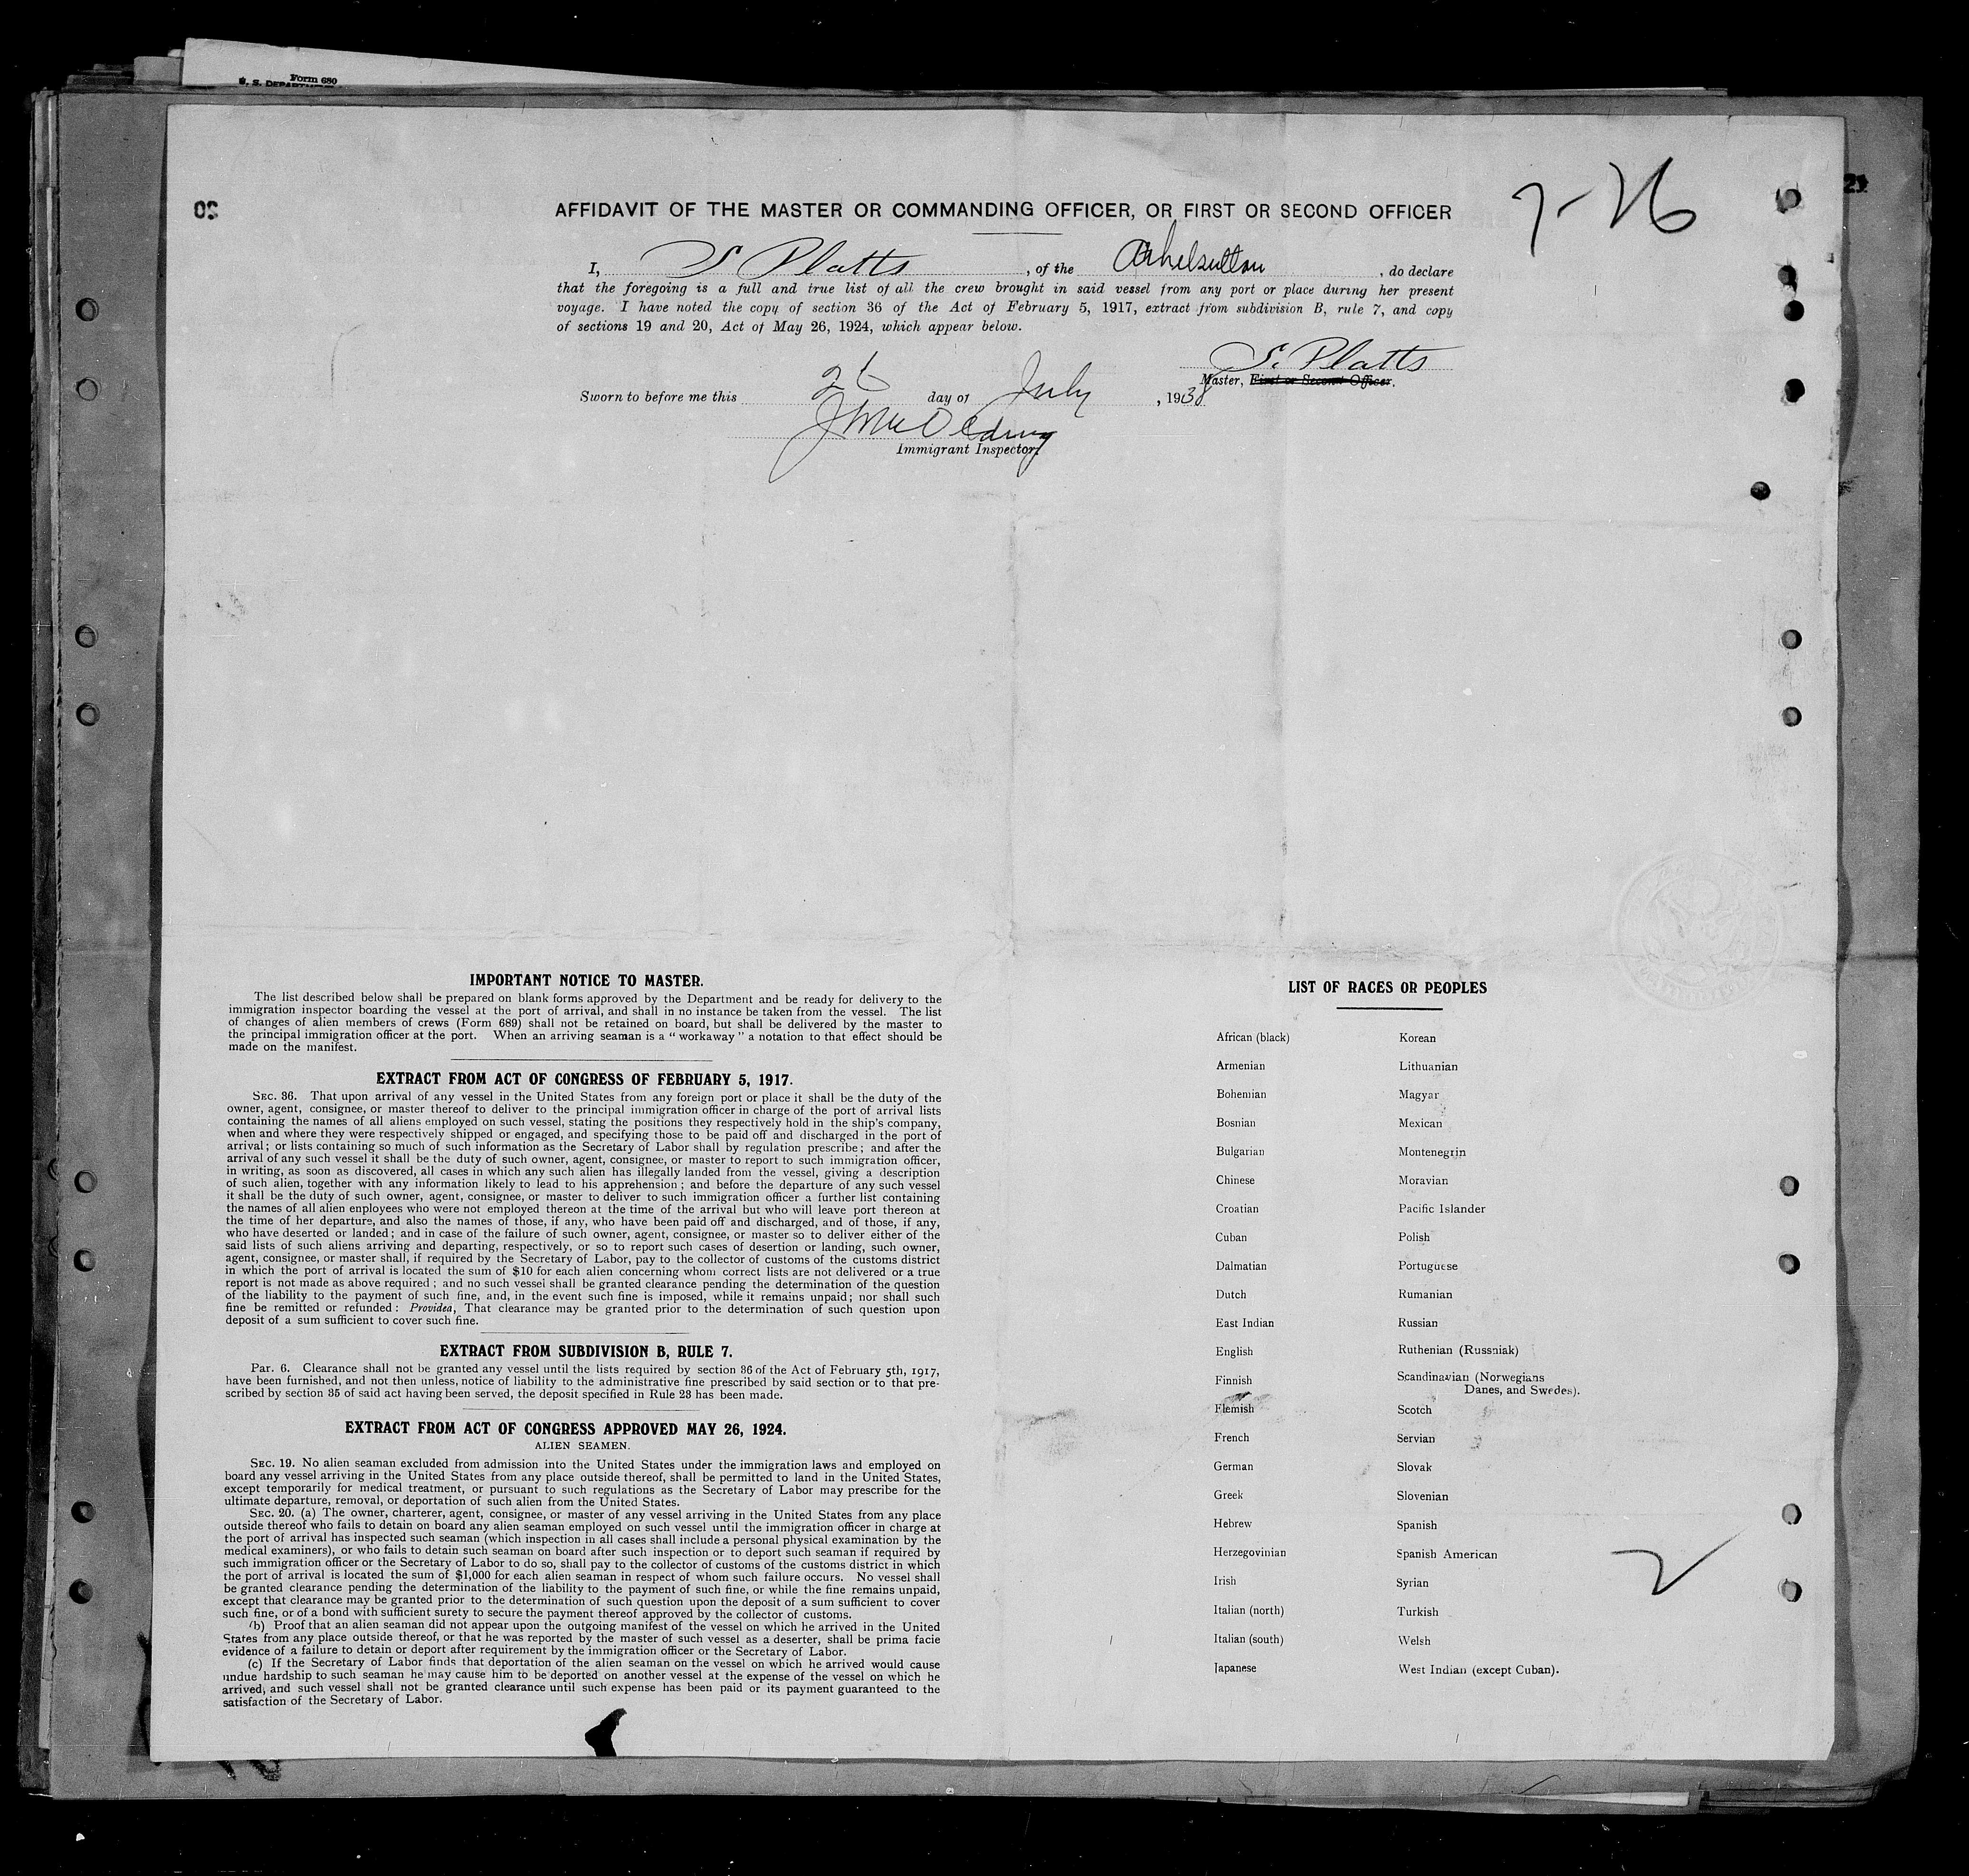 Form 680
U. S. DEPARTMENT
20
21
AFFIDAVIT OF THE MASTER OR COMMANDING OFFICER, OR FIRST OR SECOND OFFICER
7-26
I, S Platts, of the Athelsultan, do declare
that the foregoing is a full and true list of all the crew brought in said vessel from any port or place during her present
voyage. I have noted the copy of section 36 of the Act of February 5, 1917, extract from subdivision B, rule 7, and copy
of sections 19 and 20, Act of May 26, 1924, which appear below.
S. Platts
Master, First or Second Officer.
Sworn to before me this 26 day of July, 1938
Immigrant Inspector.
IMPORTANT NOTICE TO MASTER.
The list described below shall be prepared on blank forms approved by the Department and be ready for delivery to the
immigration inspector boarding the vessel at the port of arrival, and shall in no instance be taken from the vessel. The list
of changes of alien members of crews (Form 689) shall not be retained on board, but shall be delivered by the master to
the principal immigration officer at the port. When an arriving seaman is a "workaway" a notation to that effect should be
made on the manifest.
EXTRACT FROM ACT OF CONGRESS OF FEBRUARY 5, 1917.
SEC. 36. That upon arrival of any vessel in the United States from any foreign port or place it shall be the duty of the
owner, agent, consignee, or master thereof to deliver to the principal immigration officer in charge of the port of arrival lists
containing the names of all aliens employed on such vessel, stating the positions they respectively hold in the ship's company,
when and where they were respectively shipped or engaged, and specifying those to be paid off and discharged in the port of
arrival; or lists containing so much of such information as the Secretary of Labor shall by regulation prescribe; and after the
arrival of any such vessel it shall be the duty of such owner, agent, consignee, or master to report to such immigration officer,
in writing, as soon as discovered, all cases in which any such alien has illegally landed from the vessel, giving a description
of such alien, together with any information likely to lead to his apprehension; and before the departure of any such vessel
it shall be the duty of such owner, agent, consignee, or master to deliver to such immigration officer a further list containing
the names of all alien enployees who were not employed thereon at the time of the arrival but who will leave port thereon at
the time of her departure, and also the names of those, if any, who have been paid off and discharged, and of those, if any,
who have deserted or landed; and in case of the failure of such owner, agent, consignee, or master so to deliver either of the
said lists of such aliens arriving and departing, respectively, or so to report such cases of desertion or landing, such owner,
agent, consignee, or master shall, if required by the Secretary of Labor, pay to the collector of customs of the customs district
in which the port of arrival is located the sum of $10 for each alien concerning whom correct lists are not delivered or a true
report is not made as above required; and no such vessel shall be granted clearance pending the determination of the question
of the liability to the payment of such fine, and, in the event such fine is imposed, while it remains unpaid; nor shall such
fine be remitted or refunded: Provided, That clearance may be granted prior to the determination of such question upon
deposit of a sum sufficient to cover such fine.
EXTRACT FROM SUBDIVISION B, RULE 7.
Par. 6. Clearance shall not be granted any vessel until the lists required by section 36 of the Act of February 5th, 1917,
have been furnished, and not then unless, notice of liability to the administrative fine prescribed by said section or to that pre-
scribed by section 35 of said act having been served, the deposit specified in Rule 23 has been made.
EXTRACT FROM ACT OF CONGRESS APPROVED MAY 26, 1924.
ALIEN SEAMEN.
SEC. 19. No alien seaman excluded from admission into the United States under the immigration laws and employed on
board any vessel arriving in the United States from any place outside thereof, shall be permitted to land in the United States,
except temporarily for medical treatment, or pursuant to such regulations as the Secretary of Labor may prescribe for the
ultimate departure, removal, or deportation of such alien from the United States.
SEC. 20. (a) The owner, charterer, agent, consignee, or master of any vessel arriving in the United States from any place
outside thereof who fails to detain on board any alien seaman employed on such vessel until the immigration officer in charge at
the port of arrival has inspected such seaman (which inspection in all cases shall include a personal physical examination by the
medical examiners), or who fails to detain such seaman on board after such inspection or to deport such seaman if required by
such immigration officer or the Secretary of Labor to do so, shall pay to the collector of customs of the customs district in which
the port of arrival is located the sum of $1,000 for each alien seaman in respect of whom such failure occurs. No vessel shall
be granted clearance pending the determination of the liability to the payment of such fine, or while the fine remains unpaid,
except that clearance may be granted prior to the determination of such question upon the deposit of a sum sufficient to cover
such fine, or of a bond with sufficient surety to secure the payment thereof approved by the collector of customs.
(b) Proof that an alien seaman did not appear upon the outgoing manifest of the vessel on which he arrived in the United
States from any place outside thereof, or that he was reported by the master of such vessel as a deserter, shall be prima facie
evidence of a failure to detain or deport after requirement by the immigration officer or the Secretary of Labor.
(c) If the Secretary of Labor finds that deportation of the alien seaman on the vessel on which he arrived would cause
undue hardship to such seaman he may cause him to be deported on another vessel at the expense of the vessel on which he
arrived, and such vessel shall not be granted clearance until such expense has been paid or its payment guaranteed to the
satisfaction of the Secretary of Labor.
LIST OF RACES OR PEOPLES
African (black)
Armenian
Bohemian
Bosnian
Bulgarian
Chinese
Croatian
Cuban
Dalmatian
Dutch
East Indian
English
Finnish
Flemish
French
German
Greek
Hebrew
Herzegovinian
Irish
Italian (north)
Italian (south)
Japanese
Korean
Lithuanian
Magyar
Mexican
Montenegrin
Moravian
Pacific Islander
Polish
Portuguese
Rumanian
Russian
Ruthenian (Russniak)
Scandinavian (Norwegians
Danes, and Swedes).
Scotch
Servian
Slovak
Slovenian
Spanish
Spanish American
Syrian
Turkish
Welsh
West Indian (except Cuban).